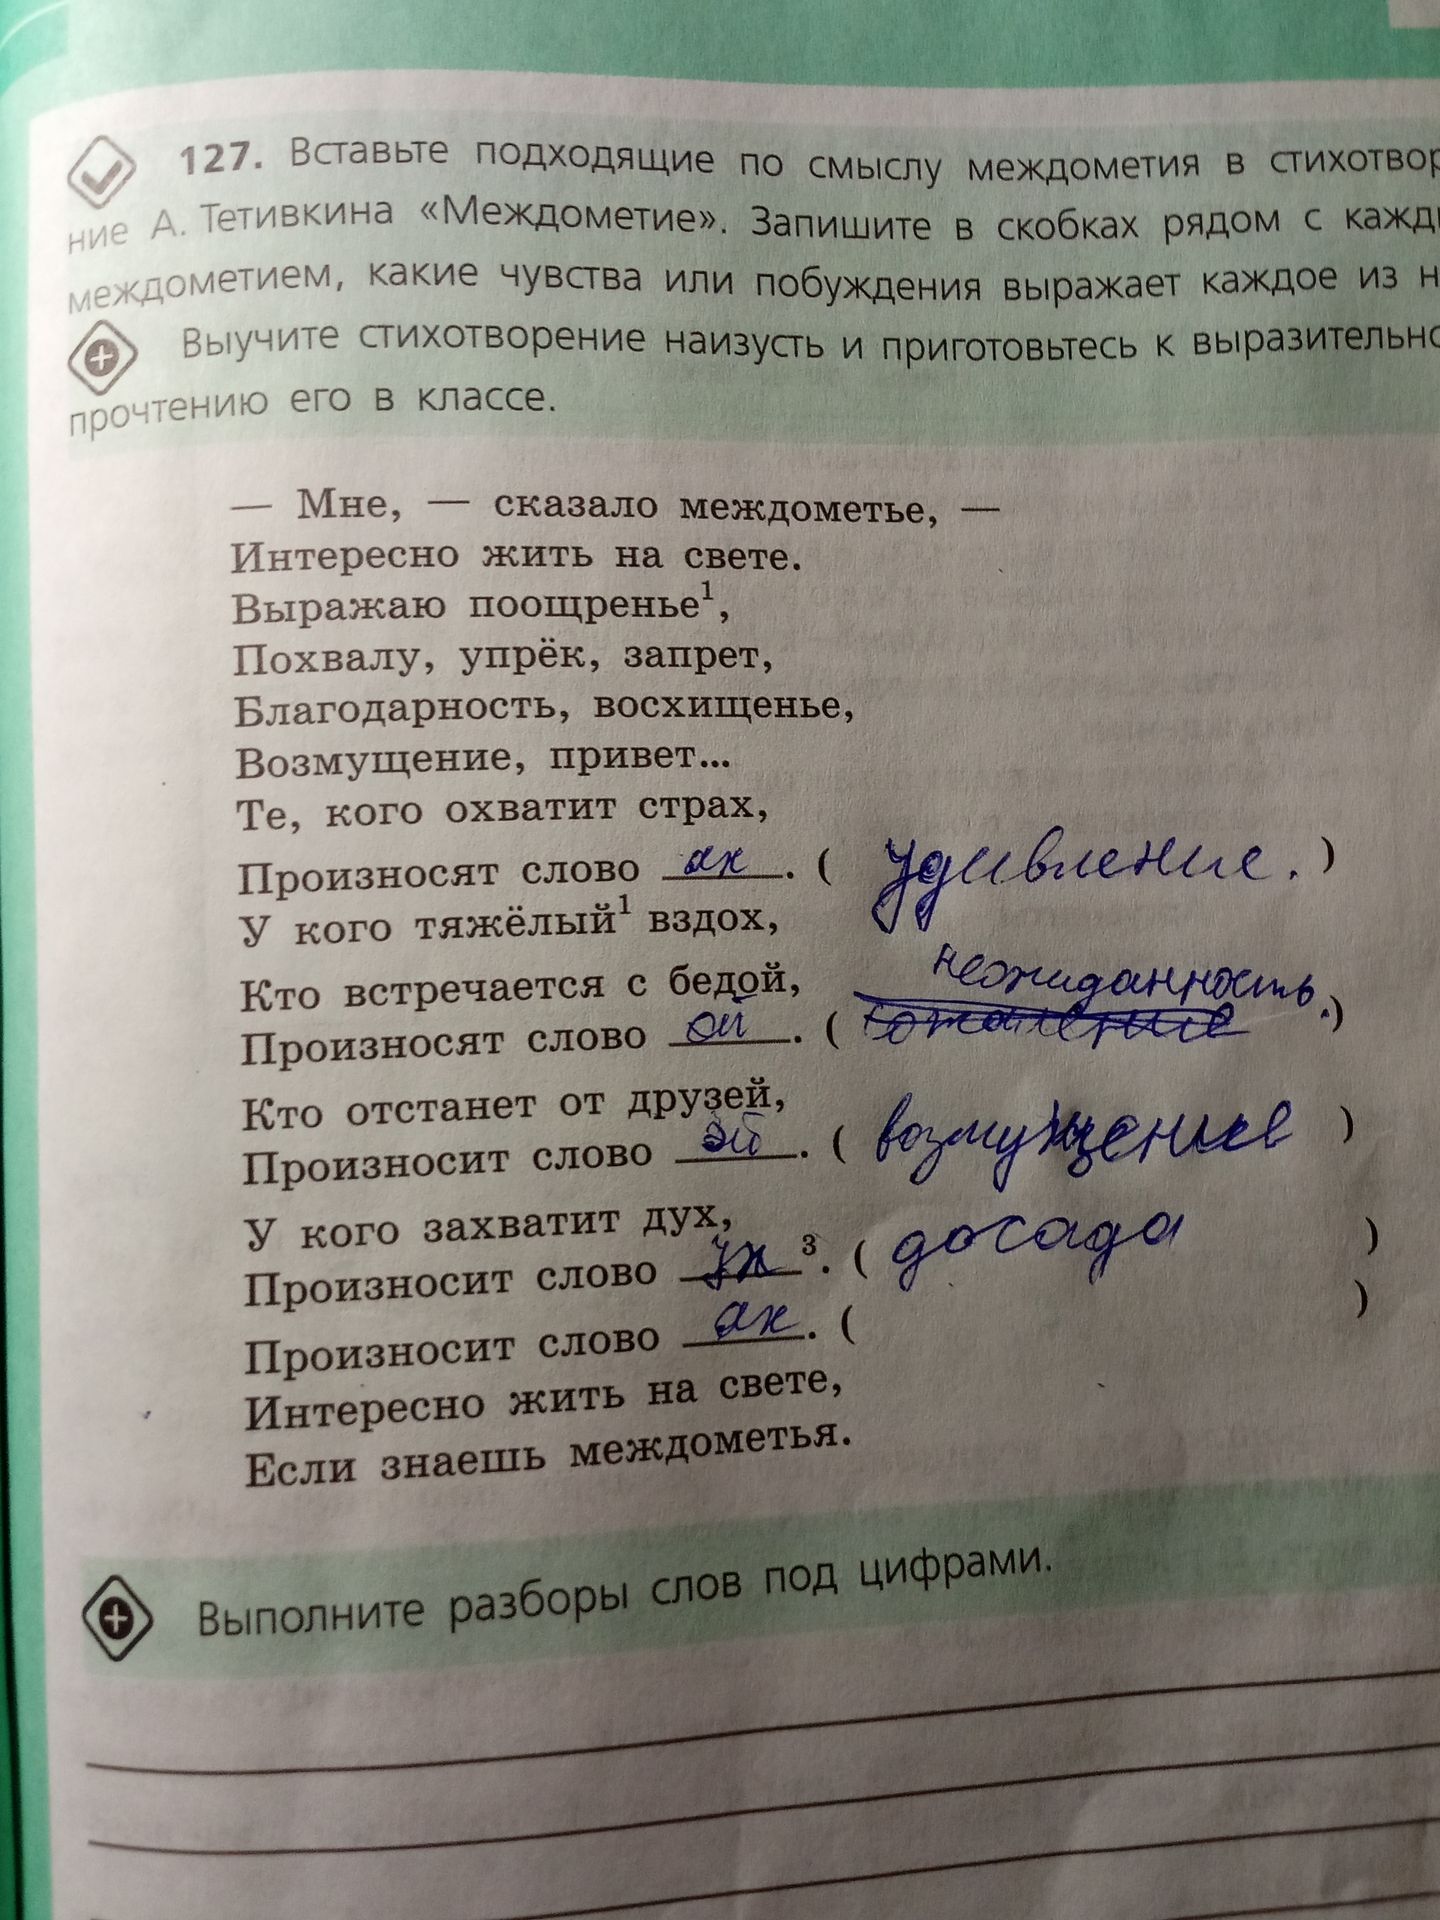 127. Вставьте подходящие по смыслу междометия в стихотвор
ние А. Тетивкина «Междометие». Запишите в скобках рядом с кажд
междометием, какие чувства или побуждения выражает каждое из н
Выучите стихотворение наизусть и приготовьтесь к выразительно
прочтению его в классе.
— Мне, — сказало междометье, —
Интересно жить на свете.
Выражаю поощренье¹,
Похвалу, упрёк, запрет,
Благодарность, восхищенье,
Возмущение, привет...
Те, кого охватит страх,
Произносят слово ах. ( удивление. )
У кого тяжёлый¹ вздох,
Кто встречается с бедой,
неожиданность.
Произносят слово ой. ( сожаление )
Кто отстанет от друзей,
Произносит слово эй. ( возмущение )
У кого захватит дух,
Произносит слово ух ³. ( досада )
Произносит слово ах. ( )
Интересно жить на свете,
Если знаешь междометья.
Выполните разборы слов под цифрами.